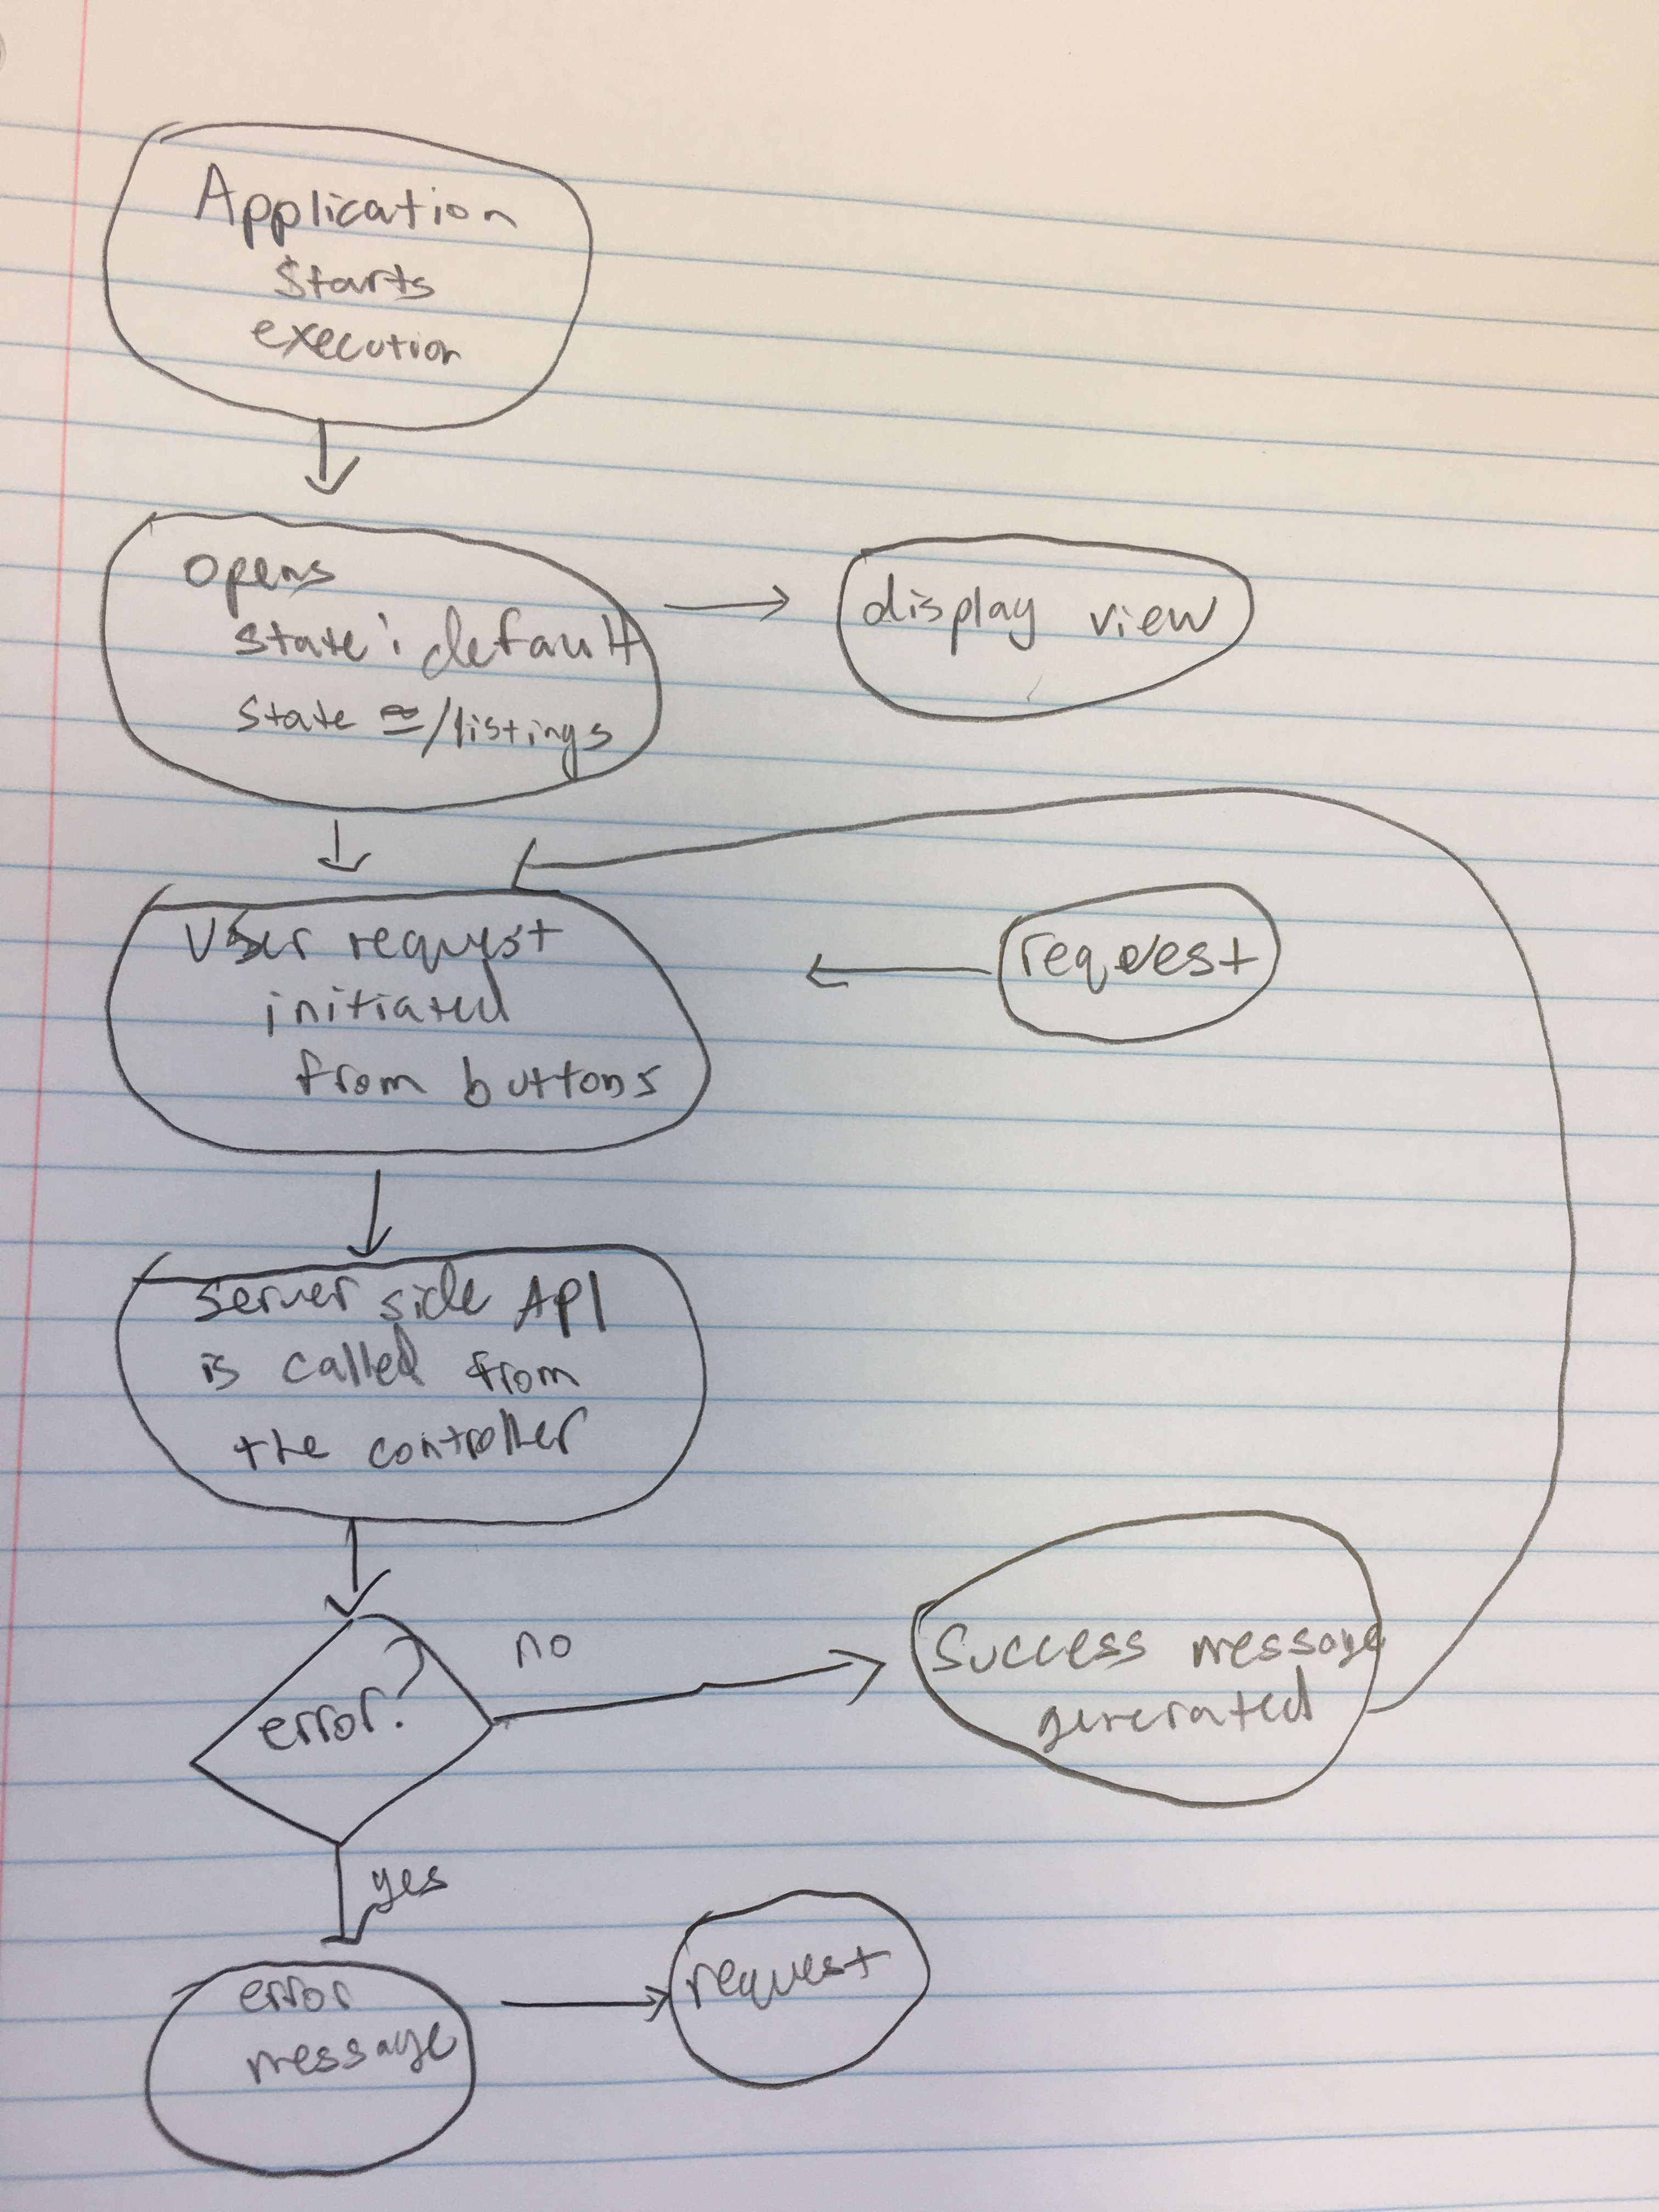 Application
starts
execution
opens
state: default
state = /listings
display view
User request
initiated
from buttons
request
server side API
is called from
the controller
error?
no
success message
generated
yes
error
message
request